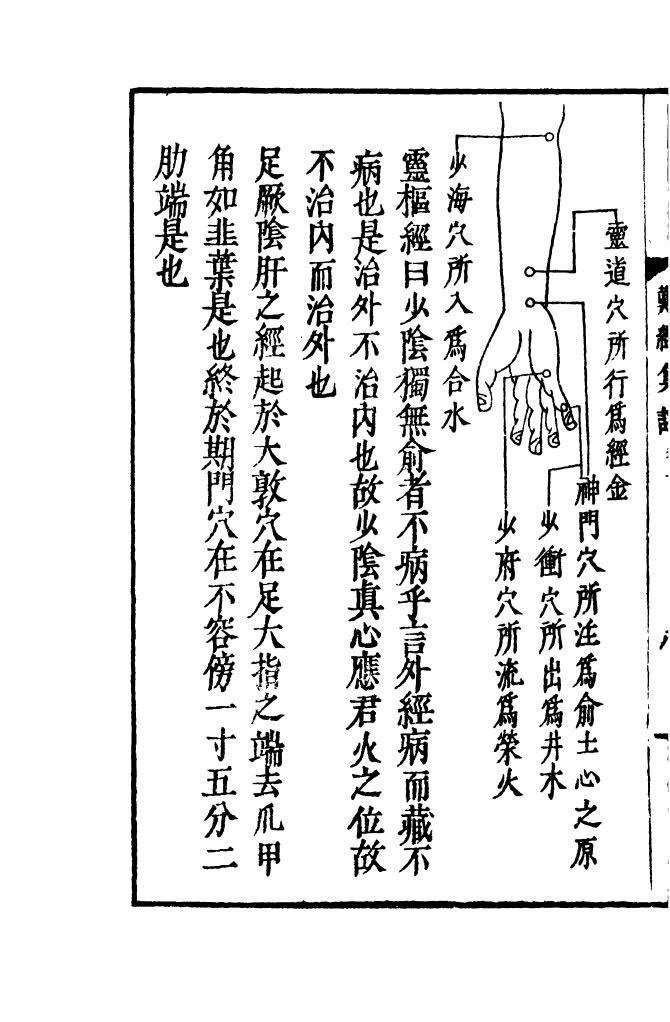 靈道穴所行爲經金
神門穴所注爲俞土心之原
少衝穴所出爲井木
少府穴所流爲榮火
少海穴所入爲合水
靈樞經曰少陰獨無俞者不病乎言外經病而藏不
病也是治外不治内也故少陰眞心應君火之位故
不治内而治外也
足厥陰肝之經起於大敦穴在足大指之端去爪甲
角如韭葉是也終於期門穴在不容傍一寸五分二
肋端是也